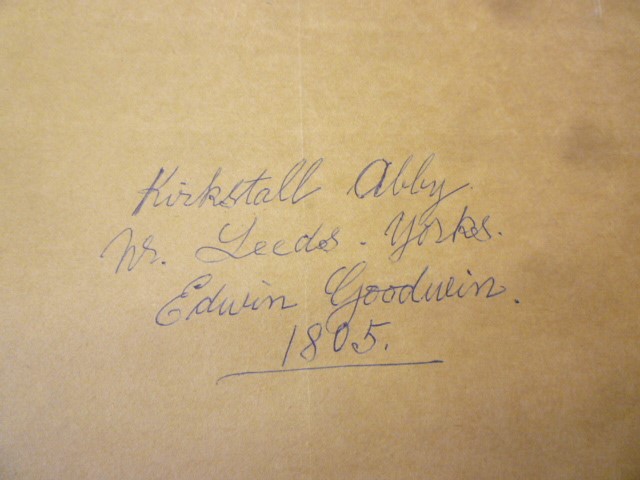 Kirkstall Abby.
Nr. Leeds. Yorks.
Edwin Goodwin.
1805.